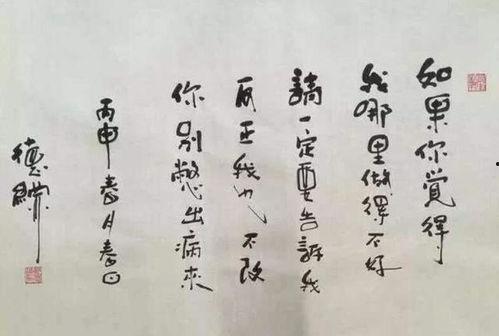 如果你覺得
我哪里做得不好
請一定要告訴我
反正我也不改
你别憋出病來
丙申春月春日